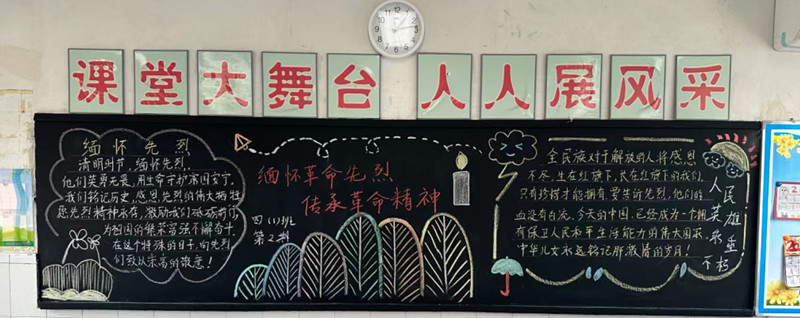 课堂大舞台 人人展风采
缅怀先烈
清明时节，缅怀先烈。
他们英勇无畏，用生命守护家国安宁。
我们铭记历史，感恩先烈的伟大牺牲
愿先烈精神永存，激励我们砥砺前行
为祖国的繁荣富强不懈奋斗。
在这个特殊的日子，向先烈
们致以崇高的敬意！
缅怀革命先烈
传承革命精神
四(1)班
第2期
全民族对于解放的人将感恩
不尽，生在红旗下，长在红旗下的我们，
只有珍惜才能拥有，要告诉先烈，他们的
血没有白流，今天的中国，已经成为一个拥
有保卫人民和平生活能力的伟大国家，
中华儿女永远铭记那激情的岁月！
人民
英雄
永垂
不朽